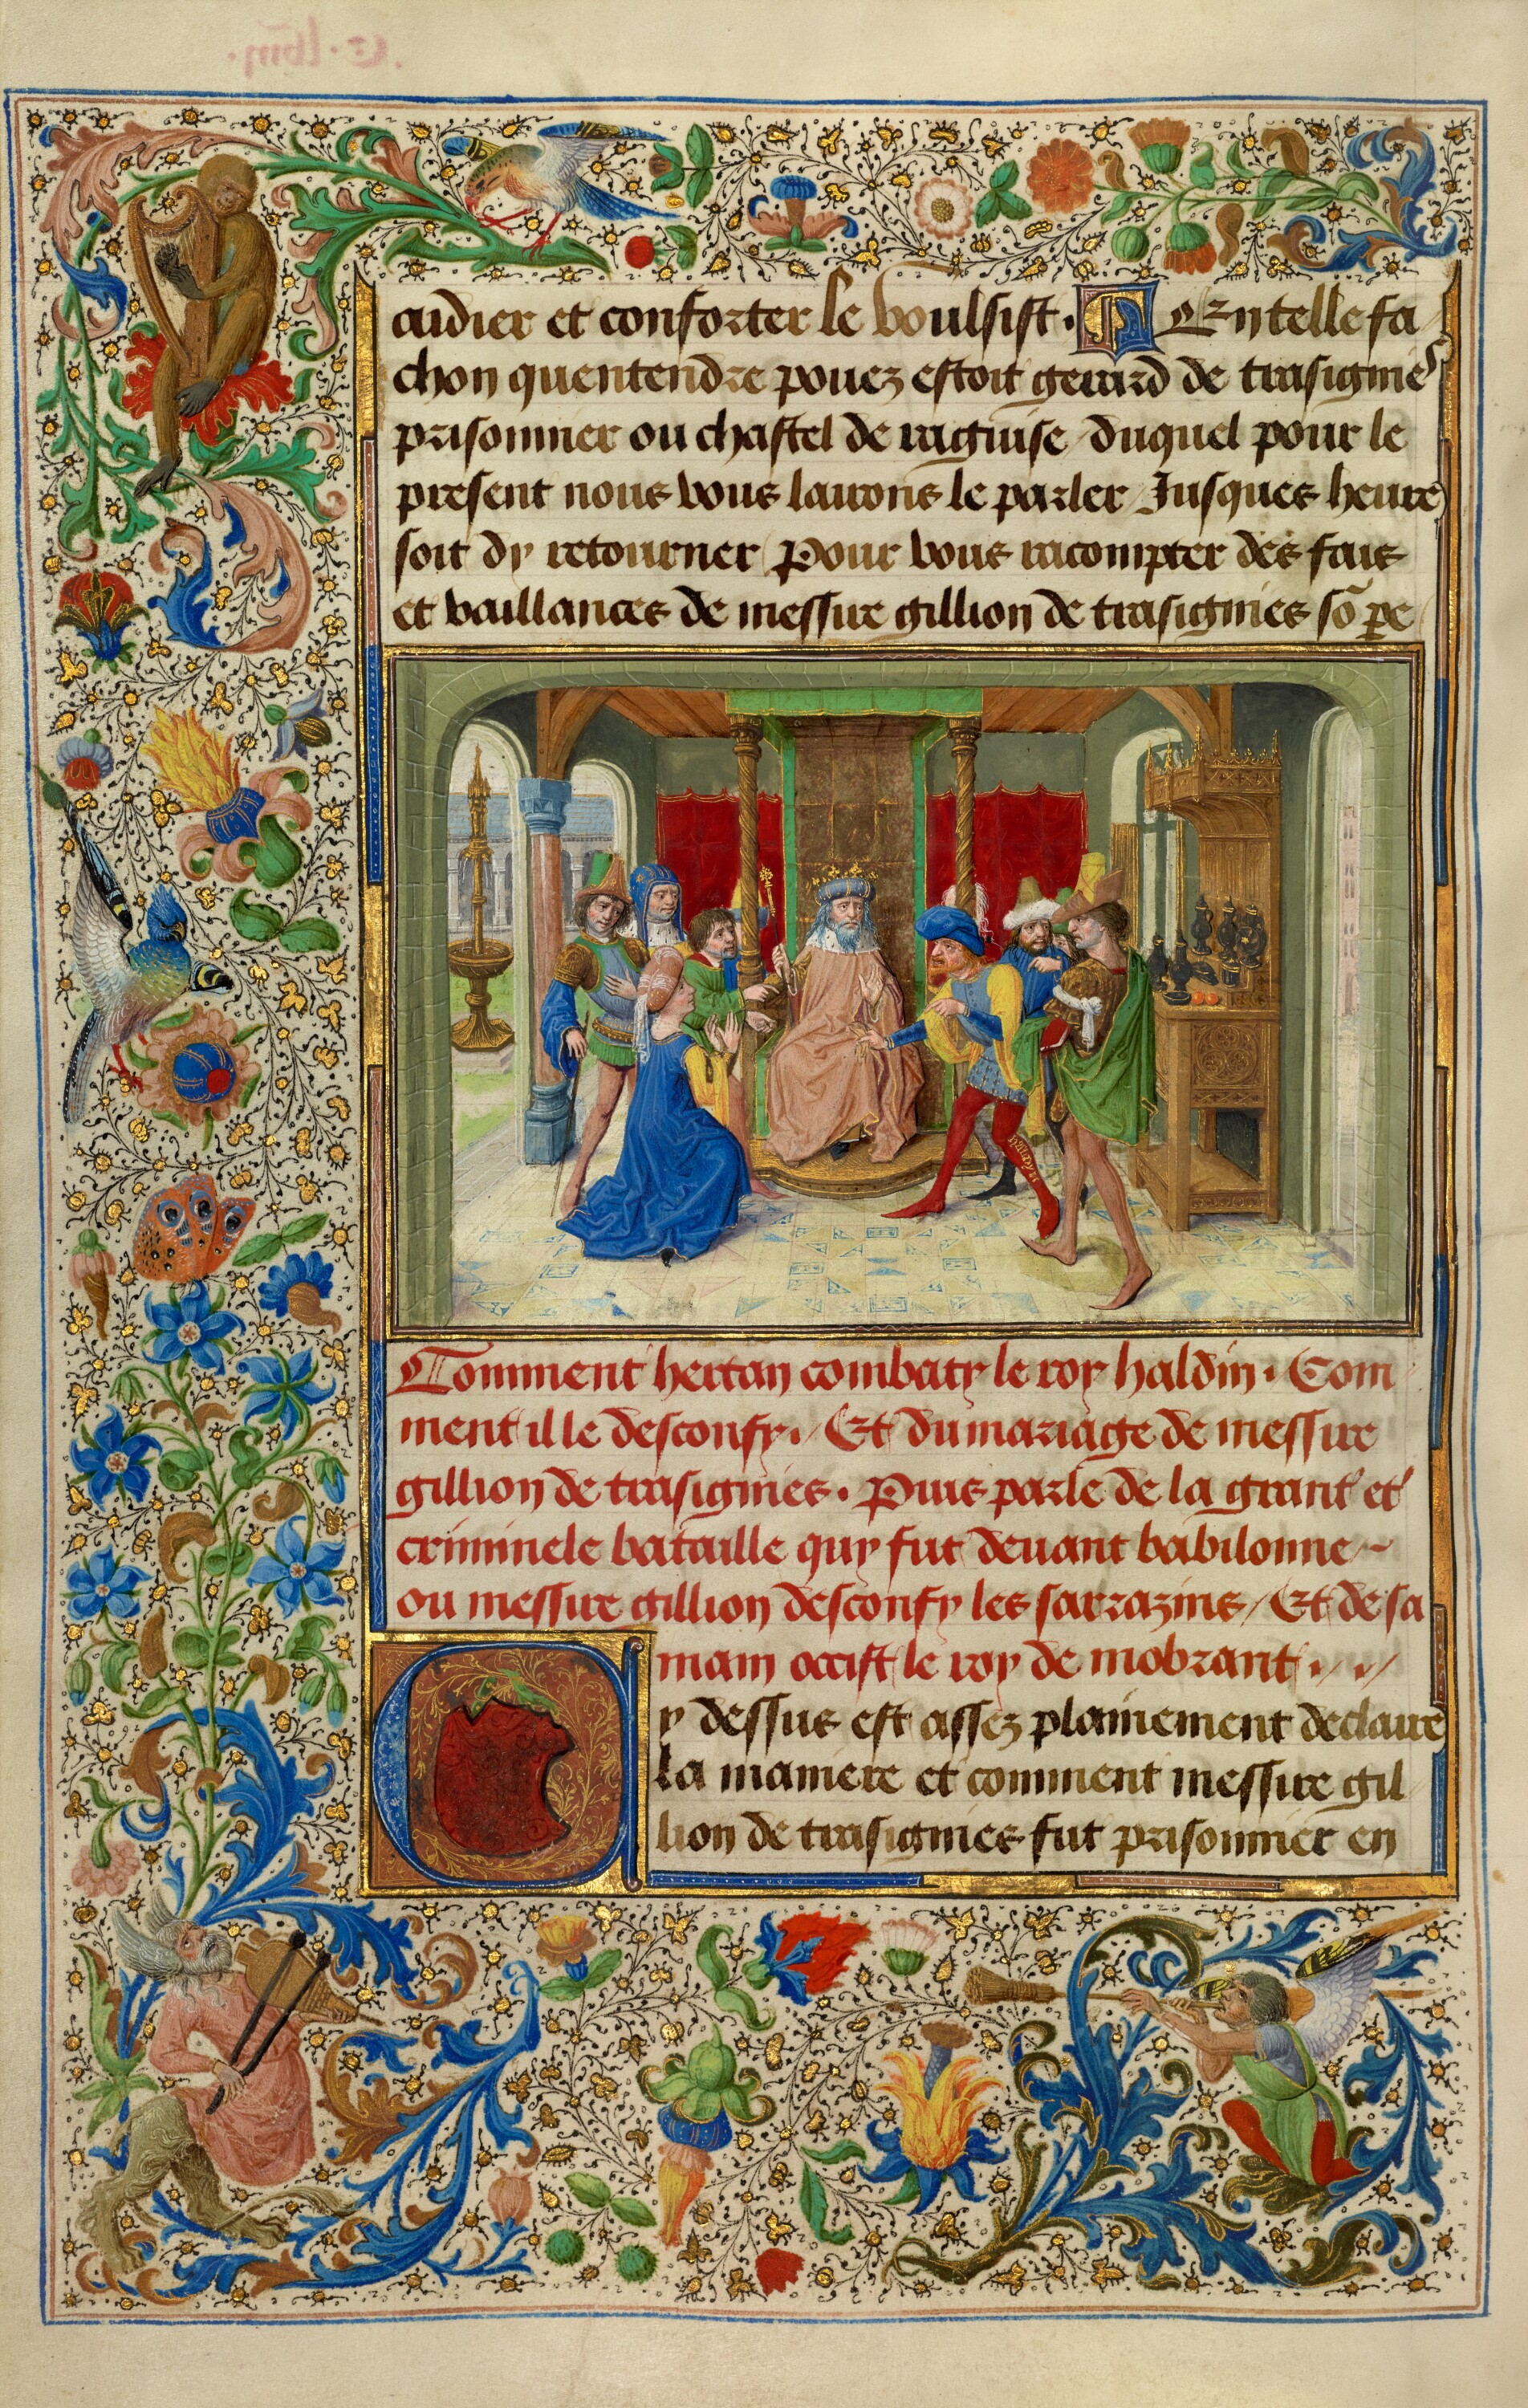 aidier et conforter le voulsist. En telle fa
chon quentendre pouez estoit gerard de trasignies
prisonnier ou chastel de raguise / duquel pour le
present nous vous lairons le parler / Jusques heure
soit dy retourner / Pour vous racompter des fais
et vaillances de messire gillion de trasignies sō pe
Comment hertan combaty le roy haldin. Com
ment il le desconfy. / Et du mariage de messire
gillion de trasignies. Puis parle de la grant et
criminele bataille quy fut deuant babilonne
ou messire gillion desconfy les sarrazins / Et de sa
main occist le roy de mobrant
Cy dessus est assez plainement declaire
la maniere et comment messire gil
lion de trasignies fut prisonnier en